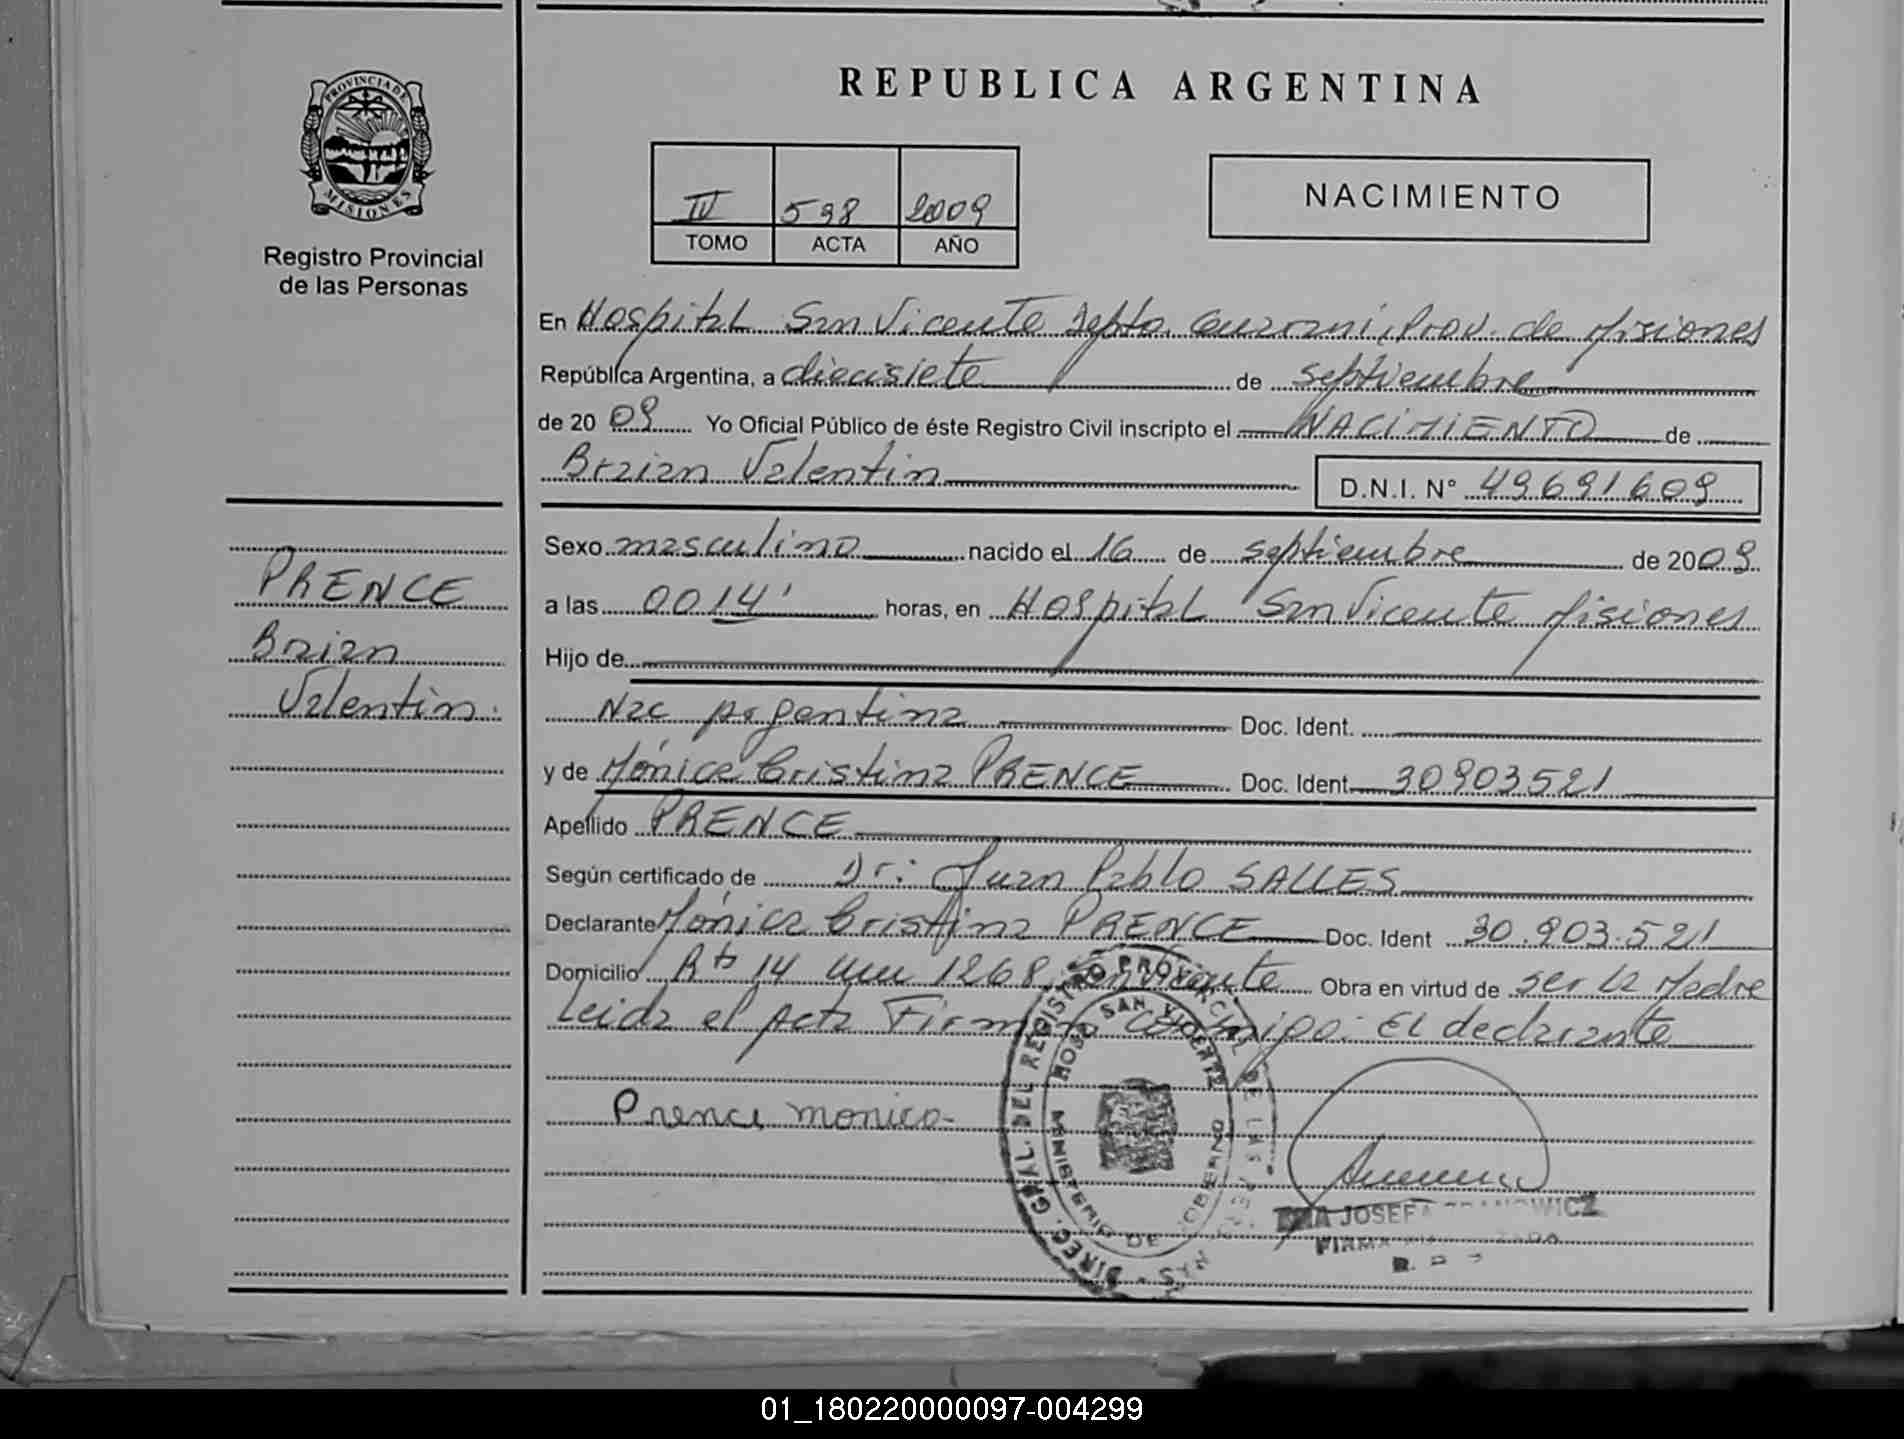 REPUBLICA ARGENTINA
PROVINCIA DE
MISIONES
Registro Provincial
de las Personas
IV 598 2009
TOMO ACTA AÑO
NACIMIENTO
En Hospital San Vicente Depto. Guarani, Prov. de Misiones
República Argentina, a diecisiete de septiembre
de 2009 Yo Oficial Público de éste Registro Civil inscripto el NACIMIENTO de
Braian Valentin D.N.I. N° 49691609
Sexo masculino nacido el 16 de septiembre de 2009
a las 0014' horas, en Hospital San Vicente Misiones
Hijo de
Nac Argentina Doc. Ident.
y de Mónica Cristina PRENCE Doc. Ident 30903521
Apellido PRENCE
Según certificado de Dr: Juan Pablo SALLES
Declarante Mónica Cristina PRENCE Doc. Ident 30.903.521
Domicilio Rta 14 km 1268 San Vicente Obra en virtud de ser la Madre
Leida el Acta Firma conmigo: El declarante
Prence monica
PRENCE
Braian
Valentin.
DIREC. GRAL. DEL REGISTRO PROVINCIAL DE LAS
HOSP. SAN VICENTE
MINISTERIO DE GOBIERNO
JOSEFA
FIRMA
01_180220000097-004299